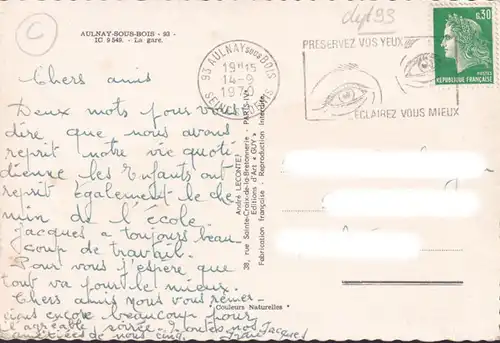 AULNAY-SOUS-BOIS - 93 -
ICI 9 549. - La gare.
C
dpt 93
93 AULNAY SOUS BOIS
19H15
14-9
SEINE ST DENIS
PRESERVEZ VOS YEUX
ECLAIREZ VOUS MIEUX
0,30
POSTES
REPUBLIQUE FRANÇAISE
Chers amis
Deux mots pour vous
dire que nous avons
reprit notre vie quoti-
dienne les Enfants ont
reprit également le che-
min de l'école.
Jacques a toujours beau-
coup de travail.
Pour vous j'espère que
tout va pour le mieux.
Chers amis nous vous remer-
cions encore beaucoup pour
l'agréable soirée. Toutes nos
amitiées de nous cinq. Jacques
André LECONTE
38, rue Sainte-Croix-de-la-Bretonnerie - PARIS-IV
Editions d'Art "GUY"
Fabrication française - Reproduction interdite
"Couleurs Naturelles"